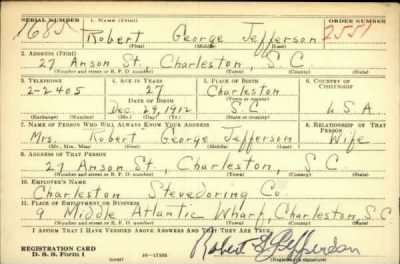 SERIAL NUMBER 1. NAME (Print) ORDER NUMBER
1685 Robert George Jefferson 2551
(First) (Middle) (Last)
2. ADDRESS (Print)
27 Anson St. Charleston, S C
(Number and street or R. F. D. number) (Town) (County) (State)
3. TELEPHONE 4. AGE IN YEARS 5. PLACE OF BIRTH 6. COUNTRY OF CITIZENSHIP
2-2405 27 Charleston
DATE OF BIRTH (Town or county)
Dec 29, 1912 S.C. U.S.A.
(Exchange) (Number) (Mo.) (Day) (Yr.) (State or country)
7. NAME OF PERSON WHO WILL ALWAYS KNOW YOUR ADDRESS 8. RELATIONSHIP OF THAT PERSON
Mrs. Robert George Jefferson Wife
(Mr., Mrs., Miss) (First) (Middle) (Last)
9. ADDRESS OF THAT PERSON
27 Anson St., Charleston, S C
(Number and street or R. F. D. number) (Town) (County) (State)
10. EMPLOYER'S NAME
Charleston Stevedoring Co.
11. PLACE OF EMPLOYMENT OR BUSINESS
9 Middle Atlantic Wharf, Charleston, S.C
(Number and street or R. F. D. number) (Town) (County) (State)
I AFFIRM THAT I HAVE VERIFIED ABOVE ANSWERS AND THAT THEY ARE TRUE.
Robert G Jefferson
REGISTRATION CARD
D. S. S. Form 1 (over) 16—17105 (Registrant's signature)